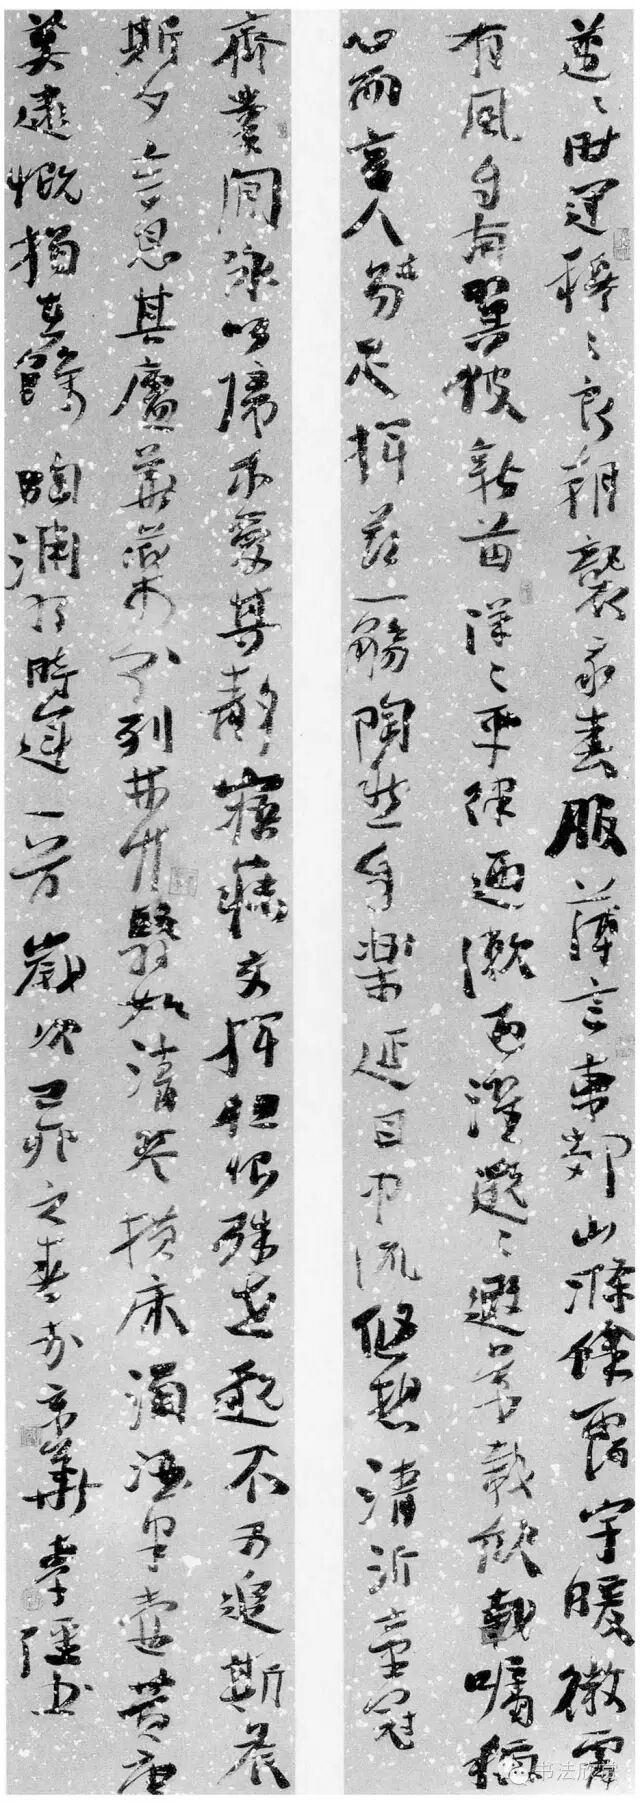 邁〻時運穆〻良朝襲我春服薄言東郊山滌餘靄宇暖微霄
有風自南翼彼新苗洋〻平津廼漱廼濯邈〻遐景載欣載矚稱
心而言人易足揮茲一觴陶然自樂延目中流悠想清沂童冠
齊業閒詠以歸我愛其靜寤寐交揮但恨殊世邈不可追斯晨
斯夕言息其廬華藥分列林竹翳如清琴橫床濁酒半壺黃唐
莫逮慨獨在餘 陶淵明時運一首 歲次己卯之春於京華李書
书法欣赏